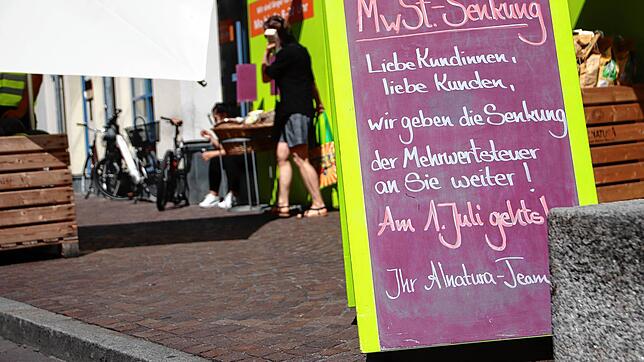 MwSt.-Senkung
Liebe Kundinnen,
liebe Kunden,
wir geben die Senkung
der Mehrwertsteuer
an Sie weiter!
Am 1. Juli gehts!
Ihr Alnatura-Team